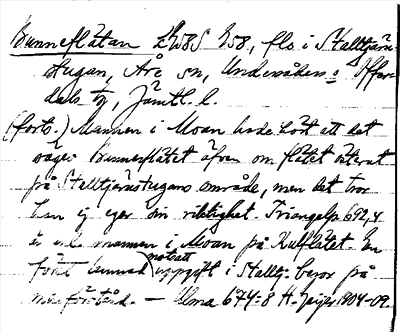 Brunneflåtan Z58S B58, flo i Stalltjärn-
stugan, Åre sn, Undersåkers o. Offer-
dals tg, Jämtl. l.
(forts.) Mannen i Moan hade hört att det
säges Brunneflåtet äfven om flåtet österut
på Stalltjärnstugans område, men det tror
han ej eger sin riktighet. Triangelp 692,4
är enl mannen i Moan på Kullflåtet. En
förut lämnad motsatt uppgift i Stalltj. beror på
missförstånd. — Ulma 674:8 H. Geijer 1904-09.